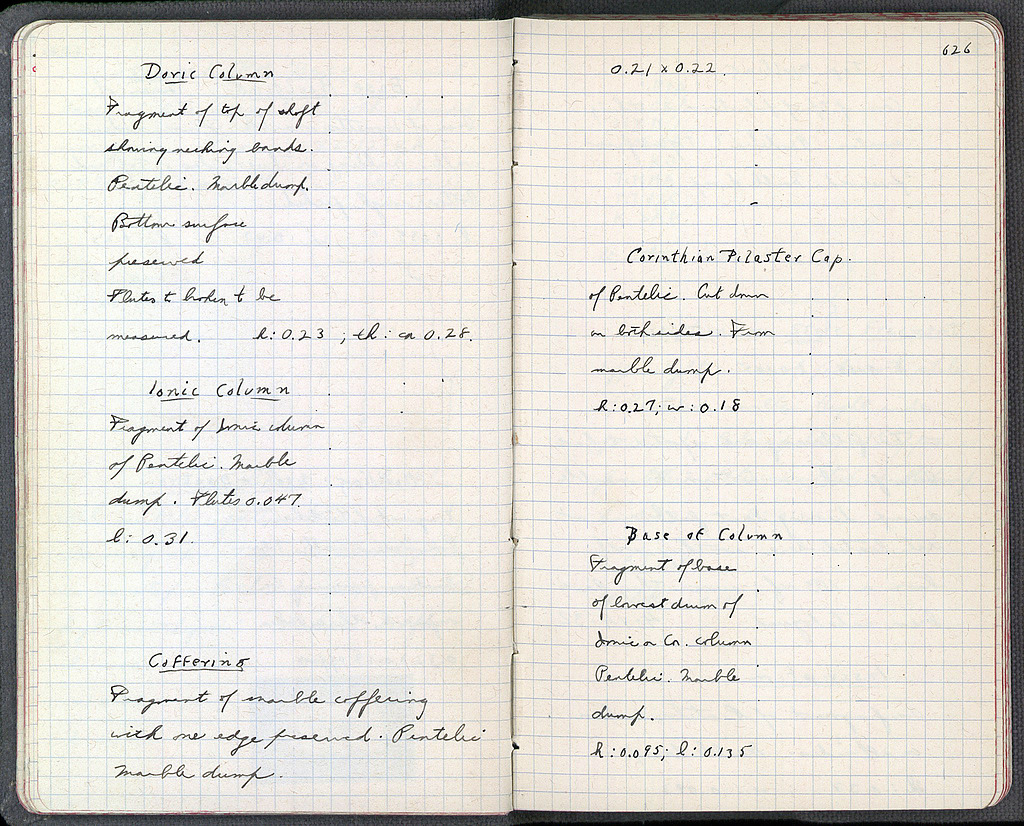 Doric Column
Fragment of top of shaft
showing necking bands.
Pentelic. Marble dump.
Bottom surface
preserved
Flutes to broken to be
measured. h: 0.23 ; th: ca 0.28.
Ionic Column
Fragment of Ionic column
of Pentelic. Marble
dump. Flutes 0.047.
l: 0.31.
Coffering
Fragment of marble coffering
with one edge preserved. Pentelic
Marble dump.
626
0.21 x 0.22.
Corinthian Pilaster Cap.
of Pentelic. Cut down
on both sides. From
marble dump.
h: 0.27; w: 0.18
Base of Column
Fragment of base
of lowest drum of
Ionic or Co. column
Pentelic. Marble
dump.
h: 0.095; l: 0.135